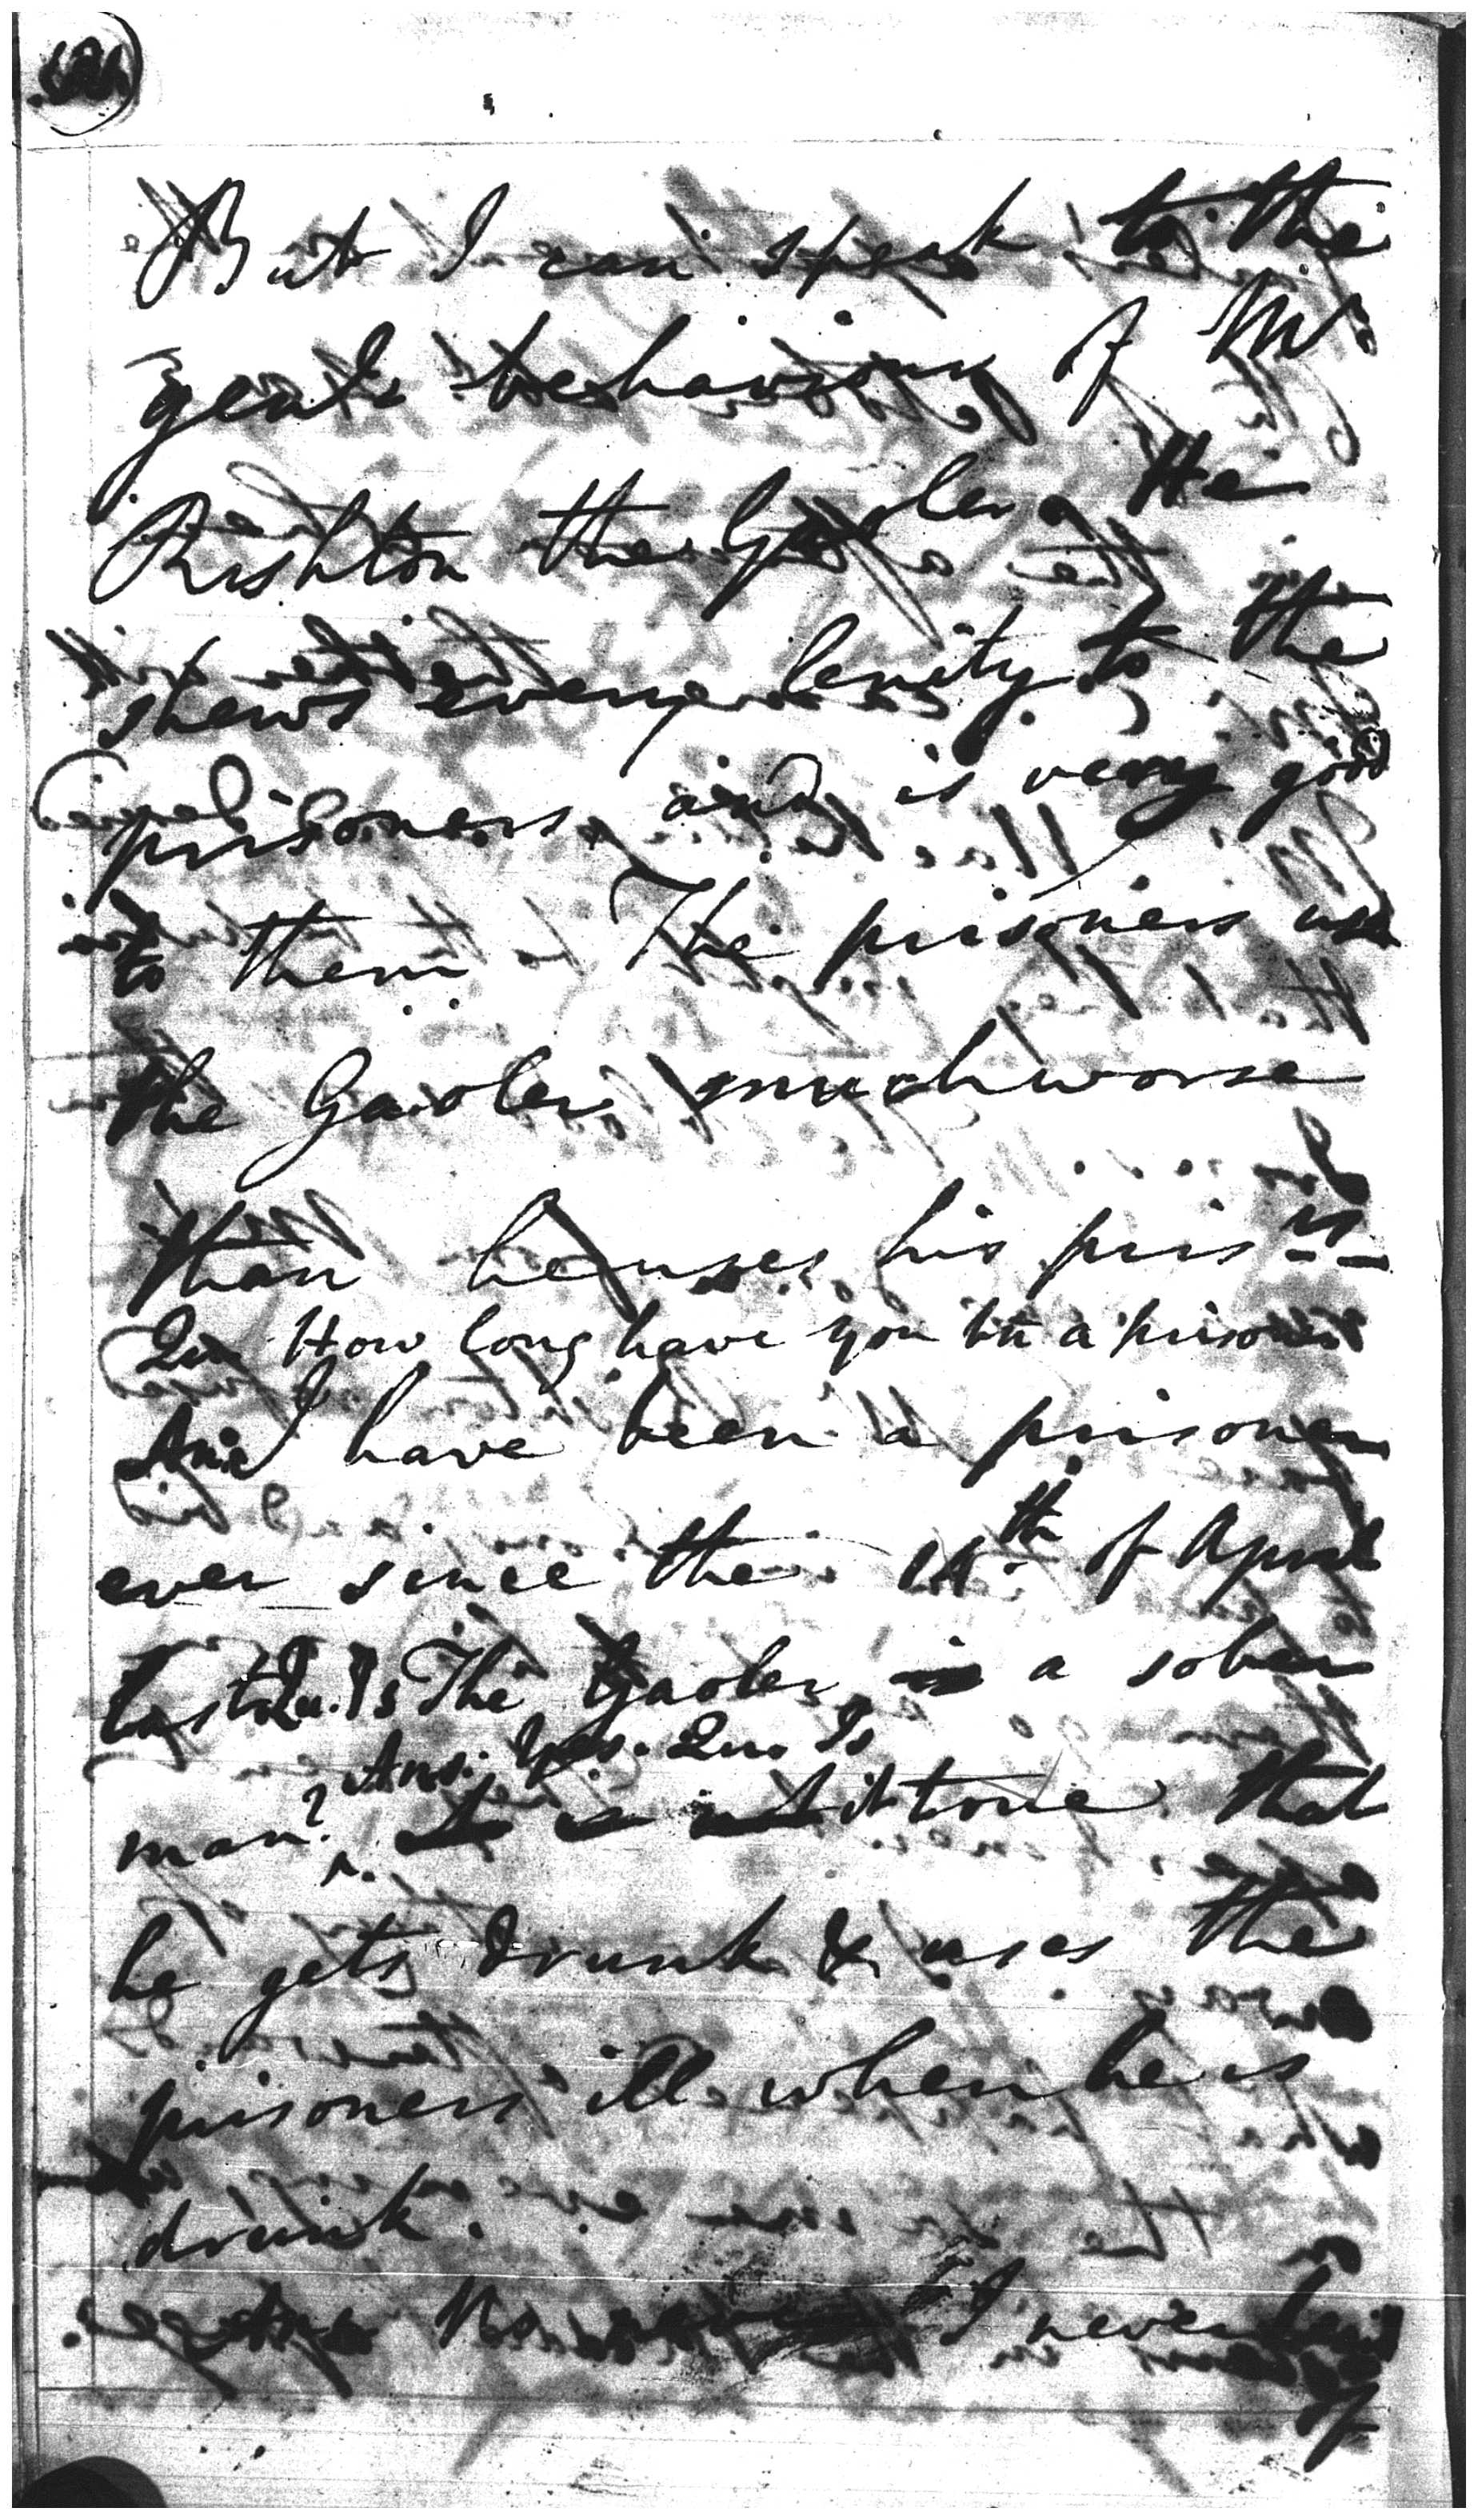 But I can speak to the
genl. behaviour of Mr.
Rishton the Gaoler. He
shews every lenity to the
prisoners, and is very good
to them. The prisoners use
the Gaoler much worse
than he uses his prisrs
Qu. How long have you bn a prisoner
Ans. I have been a prisoner
ever since the 14th of April
last Qu. Is The Gaoler a sober
man? Ans. Yes. Qu. Is
it true that
he gets drunk & uses the
prisoners ill when he is
drunk.
Ans No I never
of